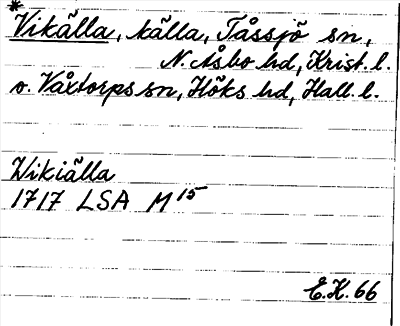 *Vikälla, källa, Tåssjö sn,
N. Åsbo hd, Krist. l.
o. Våxtorps sn, Höks hd, Hall. l.
Wikiälla
1717 LSA M 15
E.K. 66